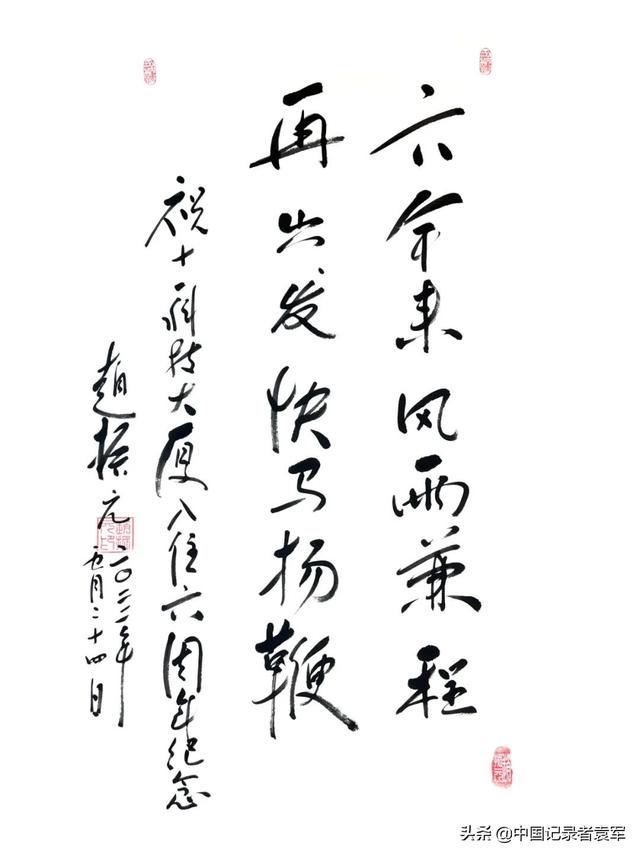 六年来风雨兼程
再出发快马扬鞭
祝十一科技大厦入住六周年纪念
趙振元 二〇二二年
五月二十四日
头条 @中国记录者袁军